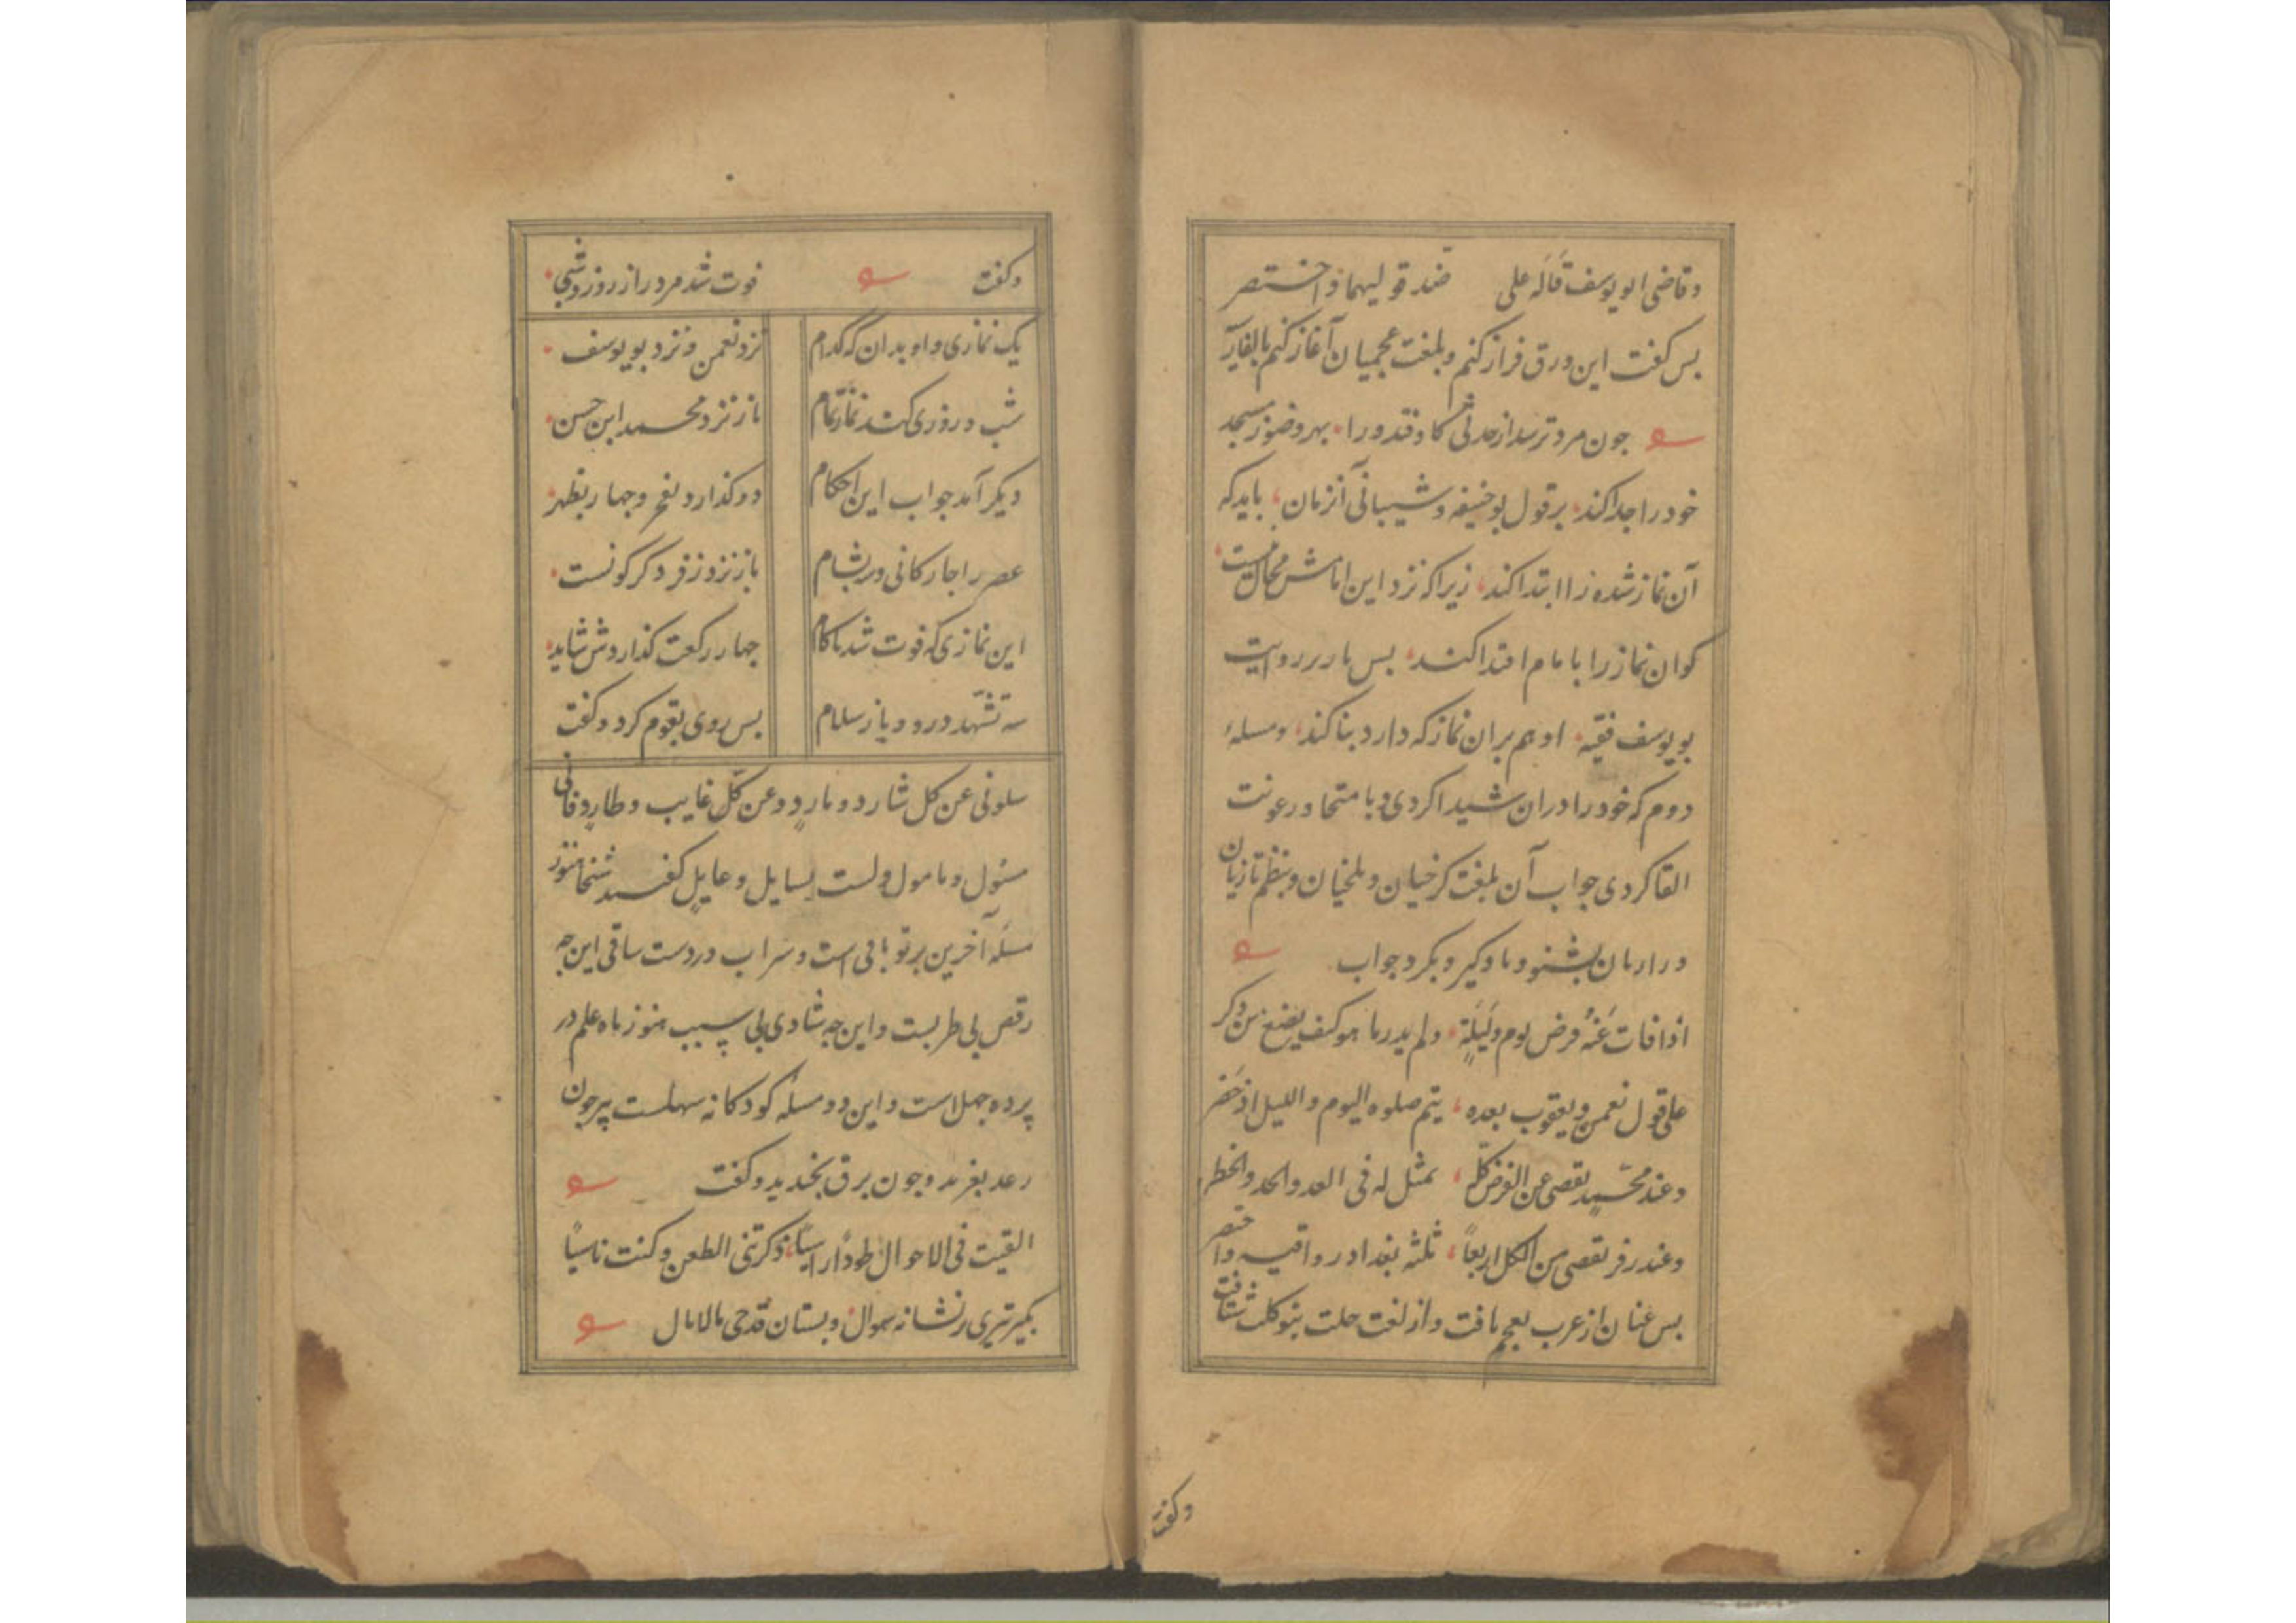 وقاضی ابو یوسف قاله علی ضد قولیهما واختصر
بس کفت این ورق فراز کنم وبلغت عجمیان آغاز کنم بالفارسیه
جون مرد ترسد از حدثی کاوفتد ورا بهر وضو ز مسجد
خود را جدا کند برقول بوحنیفه وشیبانی آنزمان باید که
آن نماز شده را ابتدا کند زیرا که نزد این امامش محال نیست
کوان نماز را با مام اقتدا کند بس باز بر روایت
بو یوسف فقیه او هم بران نماز که دارد بنا کند ومسله
دوم که خود را دران شیدا کردی وبا متحا ورعونت
القا کردی جواب آن بلغت کرخیان وبلخیان وبنظم تازیان
ورازیان بشنو ویاد کیر وبکر دجواب
اذا فات عنه فرض یوم ولیلة ولم یدر ما هو کیف یصنع من ذکر
علی قول نعمن ویعقوب بعده یتم صلوه الیوم واللیل اذ حضر
وعند محمد یقضی عن الفرض کله بمثل له فی العد والحد والخطر
وعند زفر یقضی من الکل اربعا ثلثه بغداد رواقیه واختصر
بس عنان از عرب بعجم تافت واز لغت حلت بنو کلت شتافت
وکفت
وکفت فوت شد مرد را ز روز وشبی
یک نمازی واو بدان که کدام نزد نعمن ونزد بو یوسف
شب وروزی کند نماز تمام باز نزد محمد ابن حسن
دیکر آمد جواب این احکام دو کذارد بفجر وجهار بظهر
عصر را جارکانی وسه بشام باز نزد زفر دکر کونست
این نمازی که فوت شد ناکام جهار رکعت کذاردش شاید
سه تشهد درو وباز سلام بس روی بقوم کرد وکفت
سلونی عن کل شارد ومارد وعن کل غایب وطارد فانی
مسئول ومامول ولست بسایل وعایل کفتند شیخا هنوز
مسله آخرین برتو باقی است وسراب دردست ساقی این جه
رقص بی طربست واین جه شادی بی سبب هنوز ماه علم در
پرده جهل است واین دو مسله کودکانه سهلست پیر جون
رعد بغرید وجون برق بخندید وکفت
القیت فی الاحوال طودا راسیا ذکرتنی الطعن وکنت ناسیا
بکیر تیری ز نشانه سوال وبستان قدحی مالامال